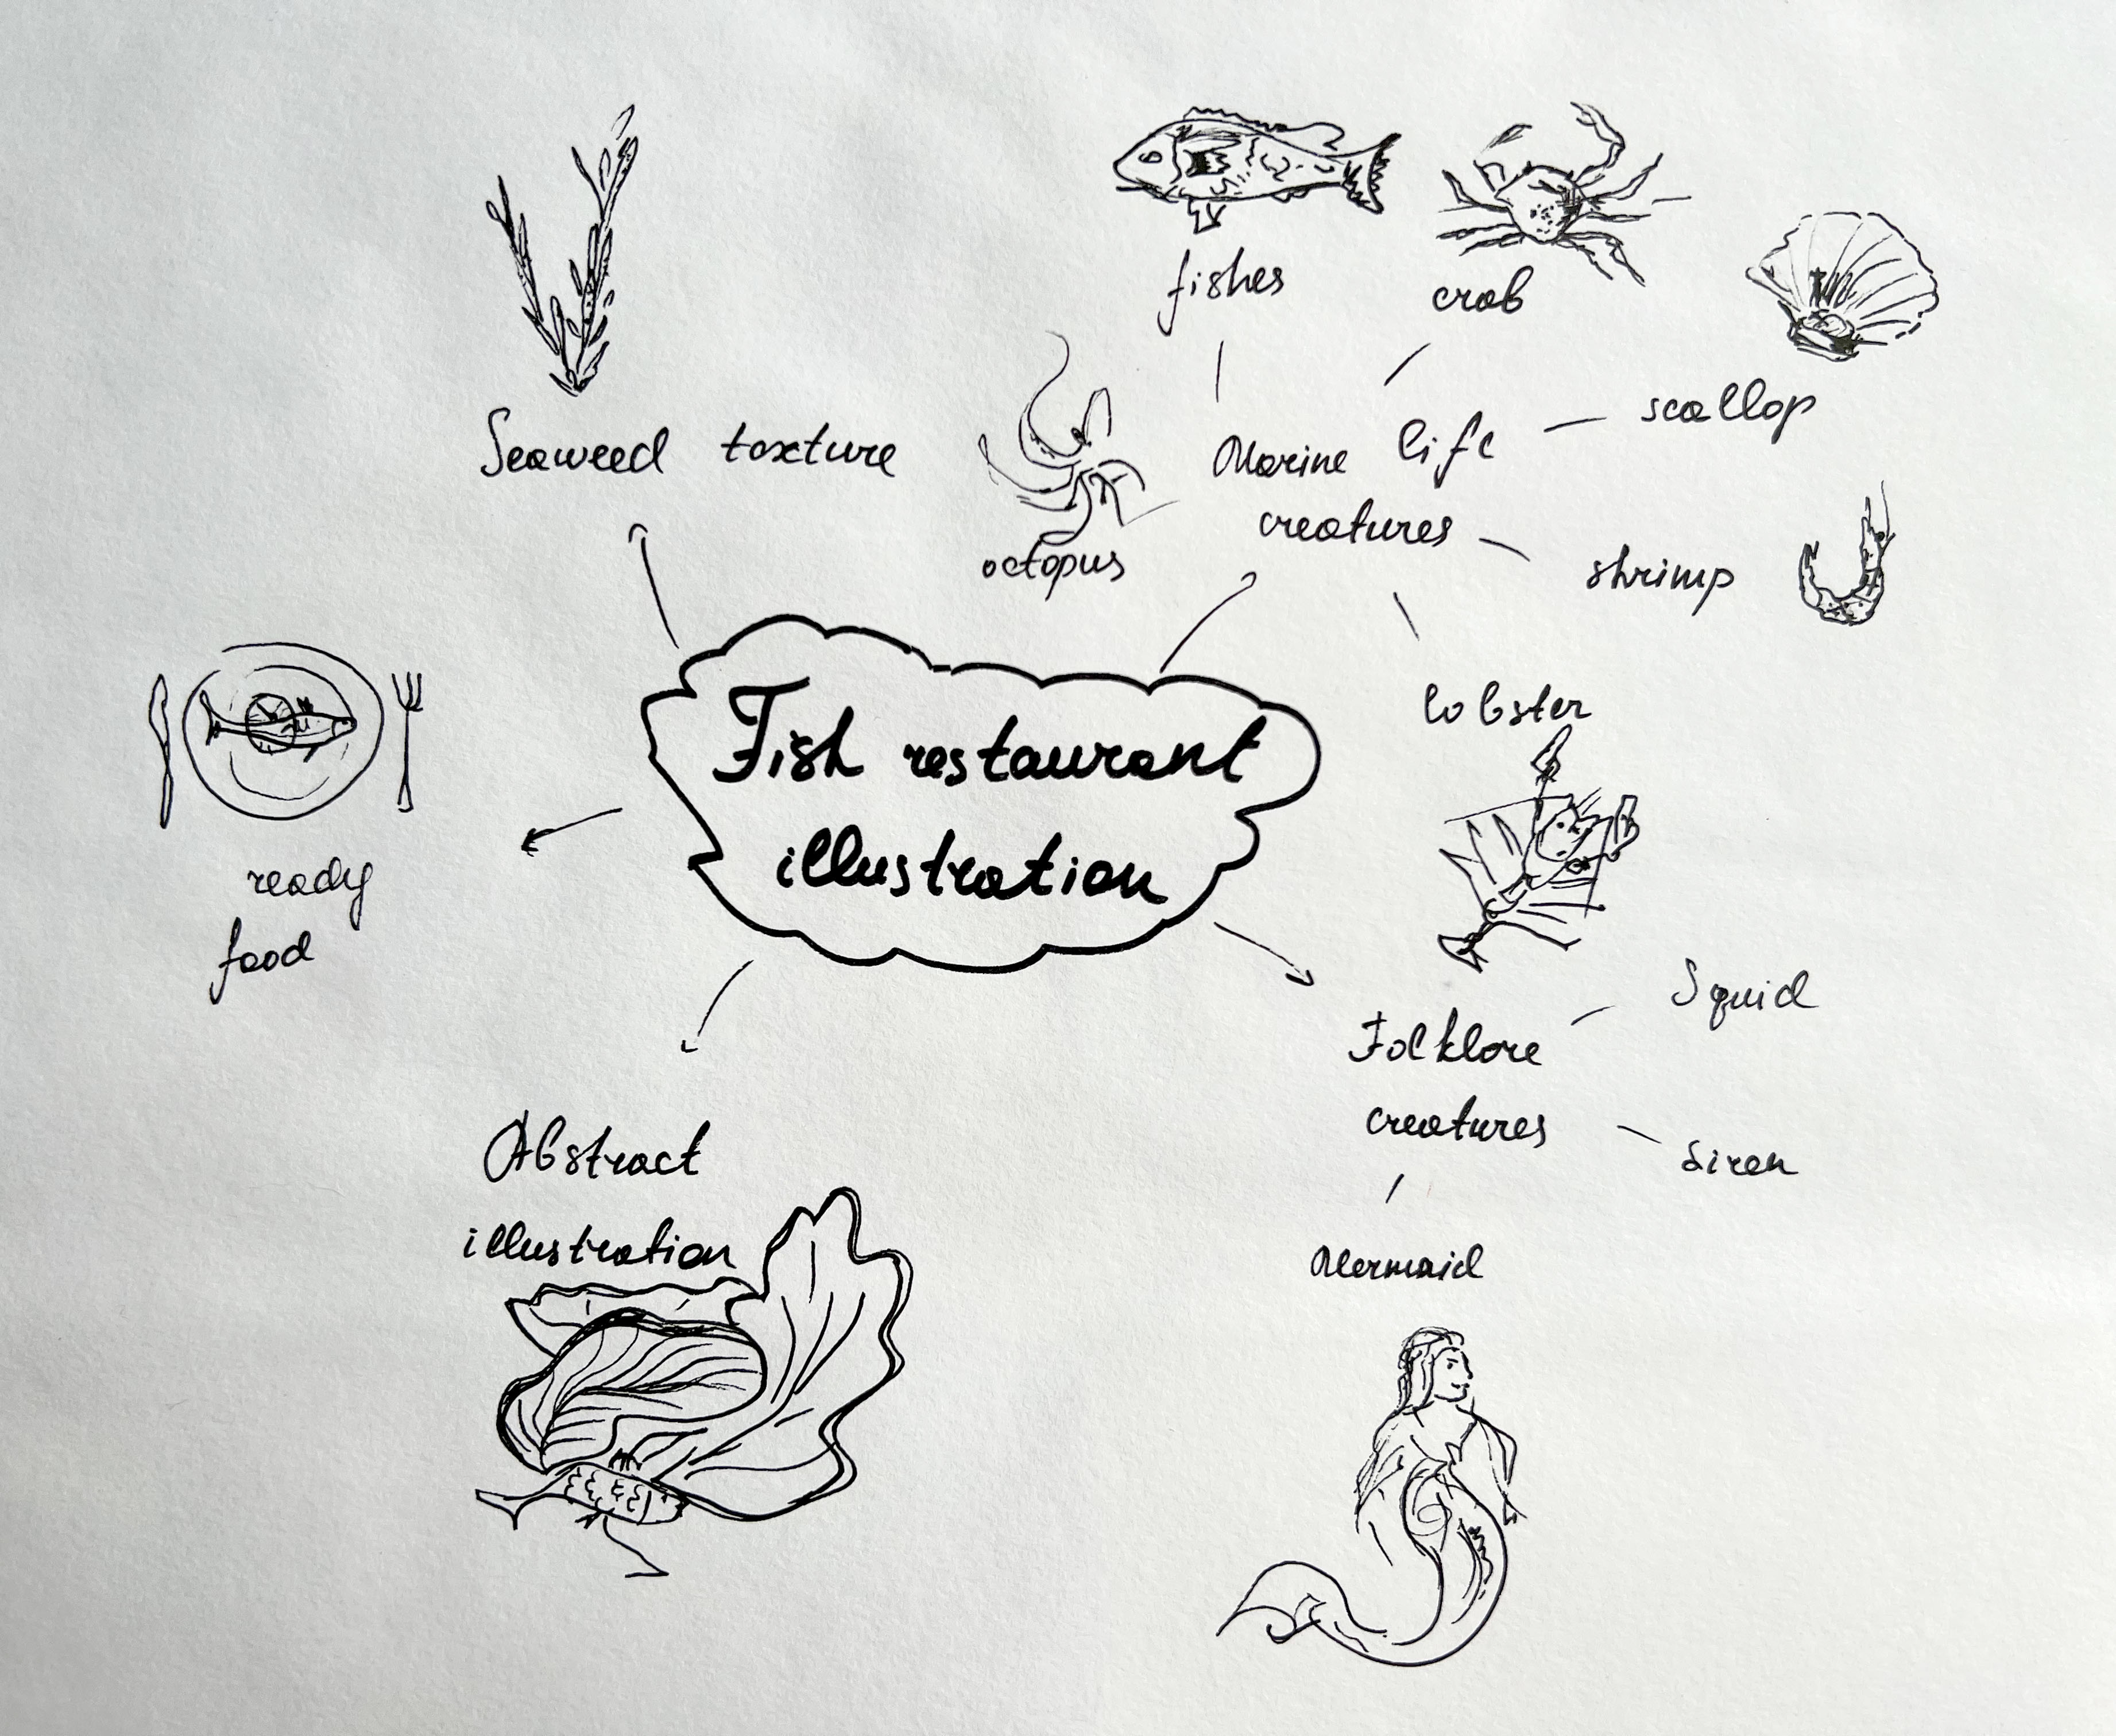 fishes
crab
scallop
Seaweed toxture
Marine life
creatures
octopus
shrimp
lobster
Fish restaurant
illustration
ready
food
Squid
Folklore
creatures
Siren
Mermaid
Abstract
illustration